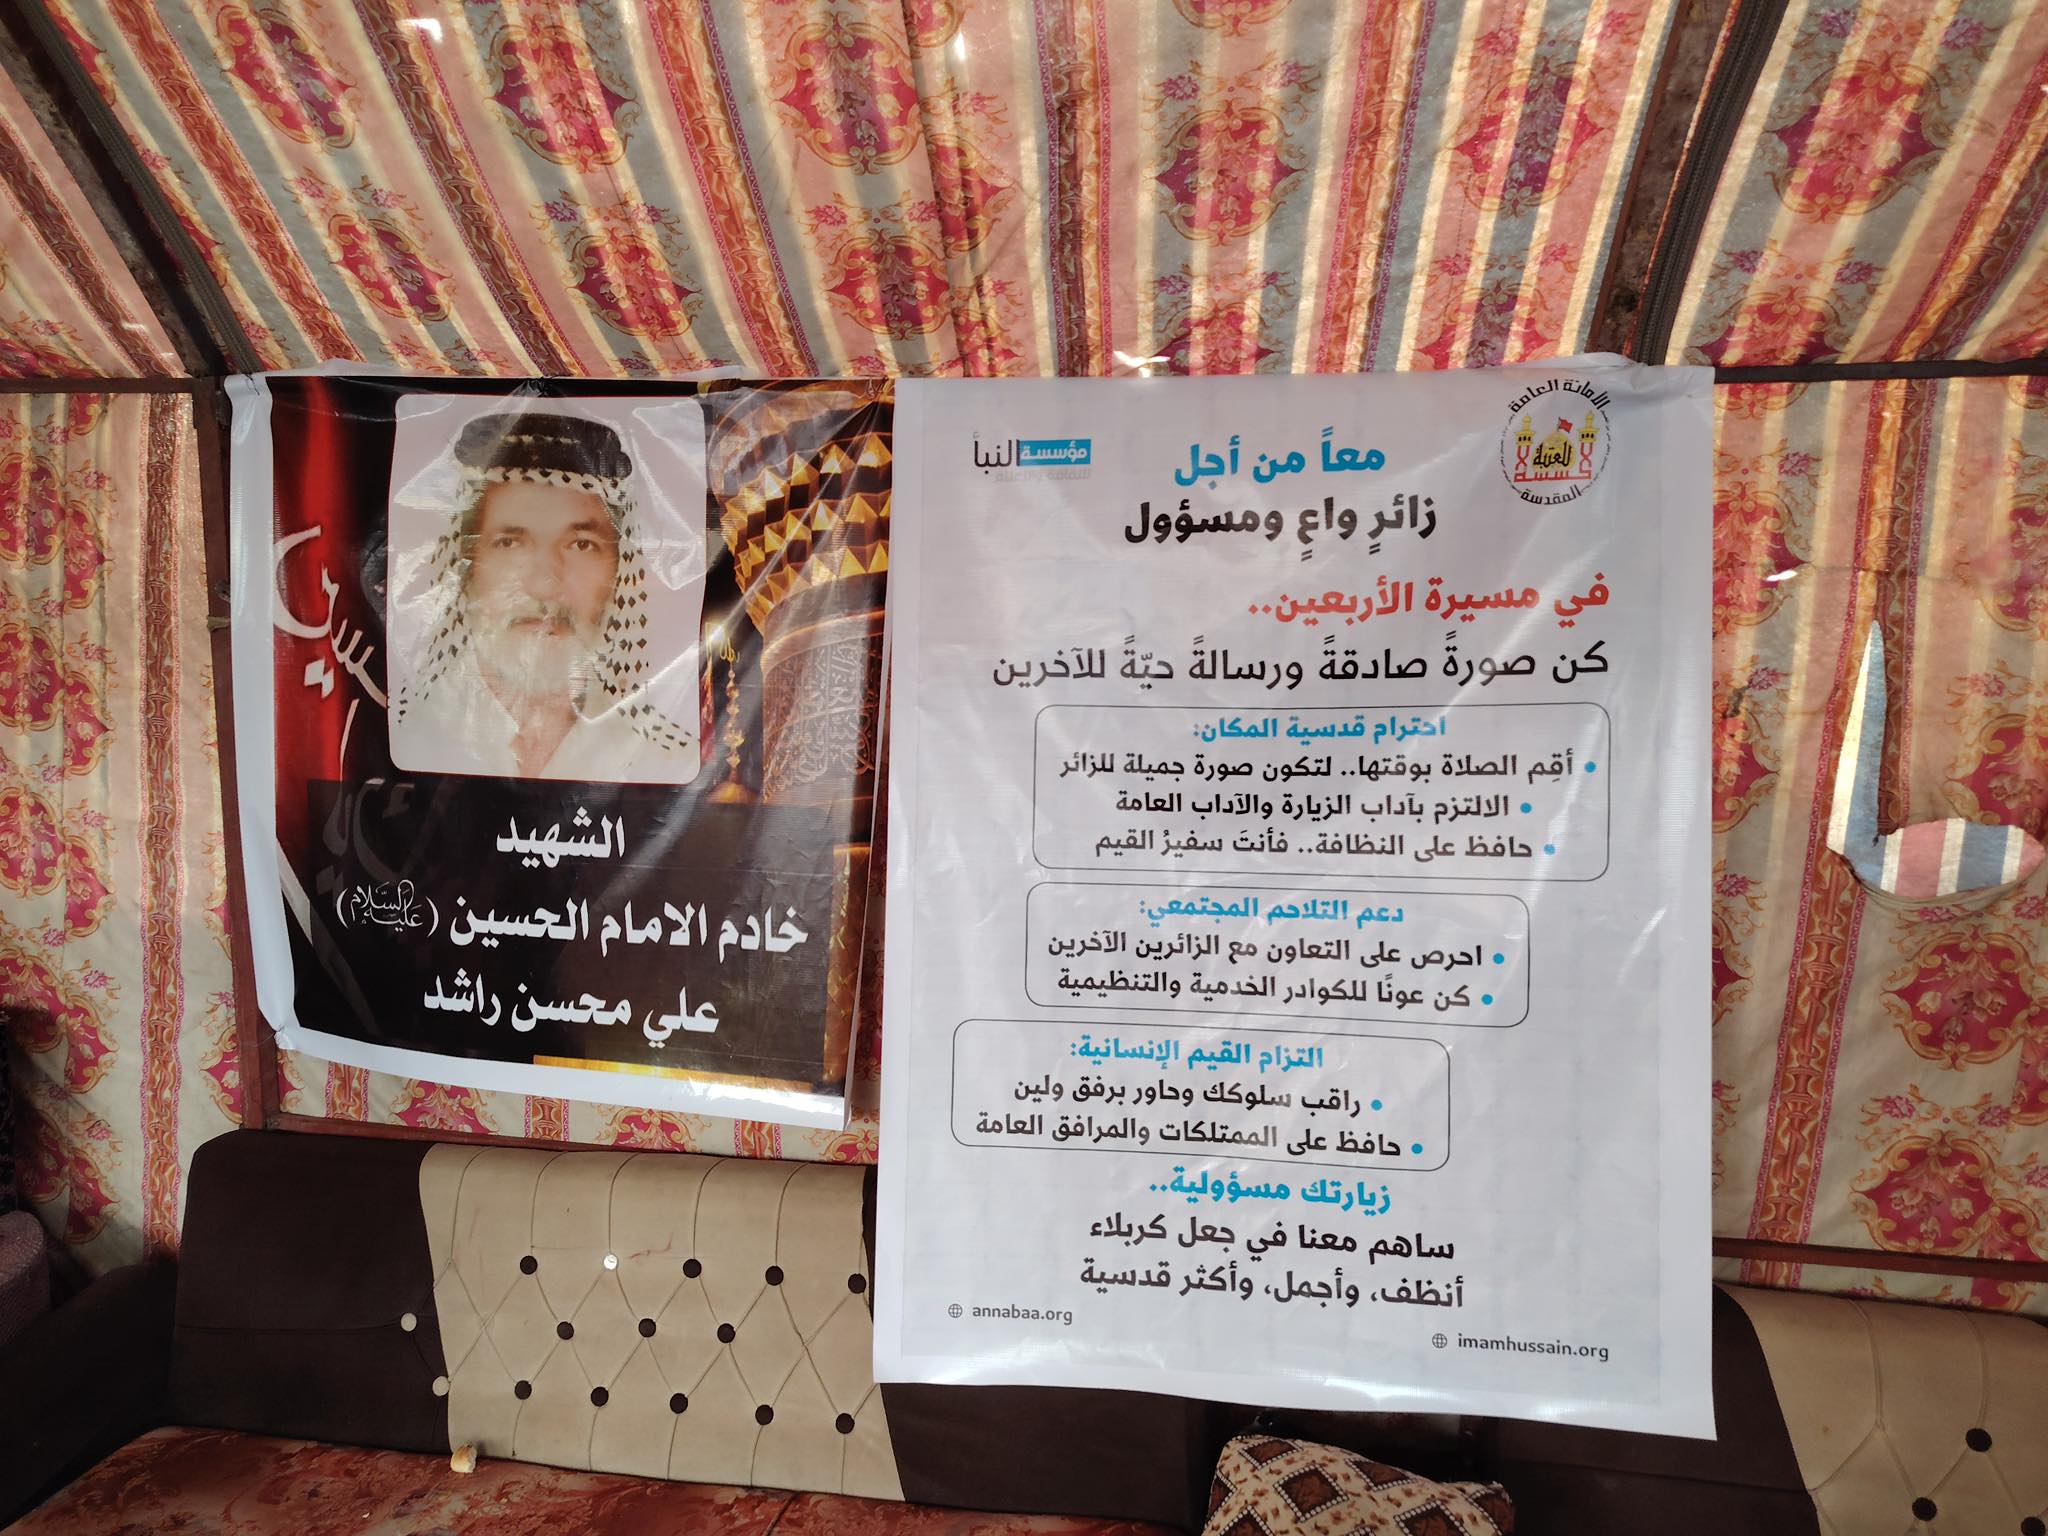 الشهيد
خادم الامام الحسين (عليه السلام)
علي محسن راشد
مؤسسة النبأ
للثقافة والإعلام
الأمانة العامة
للعتبة
الحسينية
المقدسة
معاً من أجل
زائرٍ واعٍ ومسؤول
في مسيرة الأربعين..
كن صورةً صادقةً ورسالةً حيّةً للآخرين
احترام قدسية المكان:
• أقِم الصلاة بوقتها.. لتكون صورة جميلة للزائر
• الالتزم بآداب الزيارة والآداب العامة
• حافظ على النظافة.. فأنتَ سفيرُ القيم
دعم التلاحم المجتمعي:
• احرص على التعاون مع الزائرين الآخرين
• كن عونًا للكوادر الخدمية والتنظيمية
التزام القيم الإنسانية:
• راقب سلوكك وحاور برفق ولين
• حافظ على الممتلكات والمرافق العامة
زيارتك مسؤولية..
ساهم معنا في جعل كربلاء
أنظف، وأجمل، وأكثر قدسية
annabaa.org
imamhussain.org